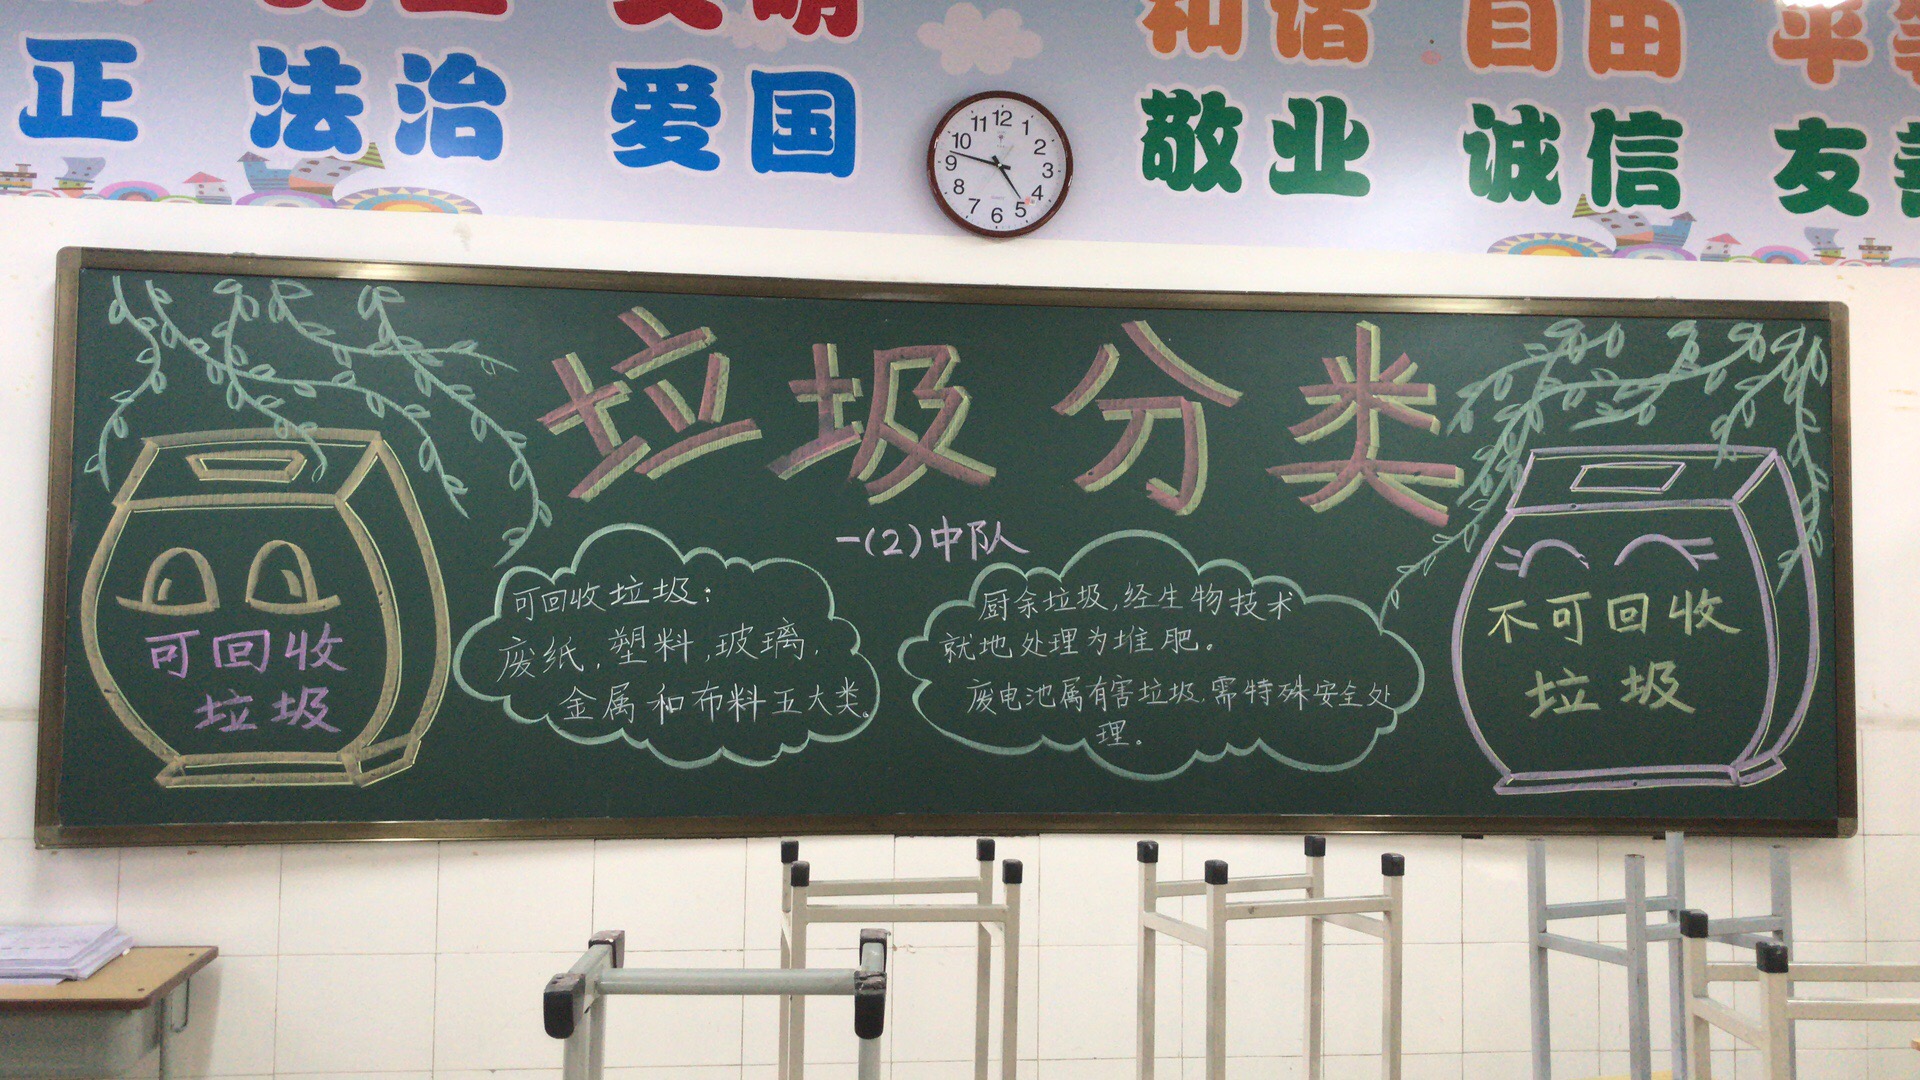 文明
和谐
自由
平
正
法治
爱国
敬业
诚信
友善
12
1
2
3
4
5
6
7
8
9
10
11
垃圾分类
一(2)中队
可回收
垃圾
可回收垃圾:
废纸,塑料,玻璃,
金属和布料五大类。
厨余垃圾,经生物技术
就地处理为堆肥。
废电池属有害垃圾,需特殊安全处
理。
不可回收
垃圾